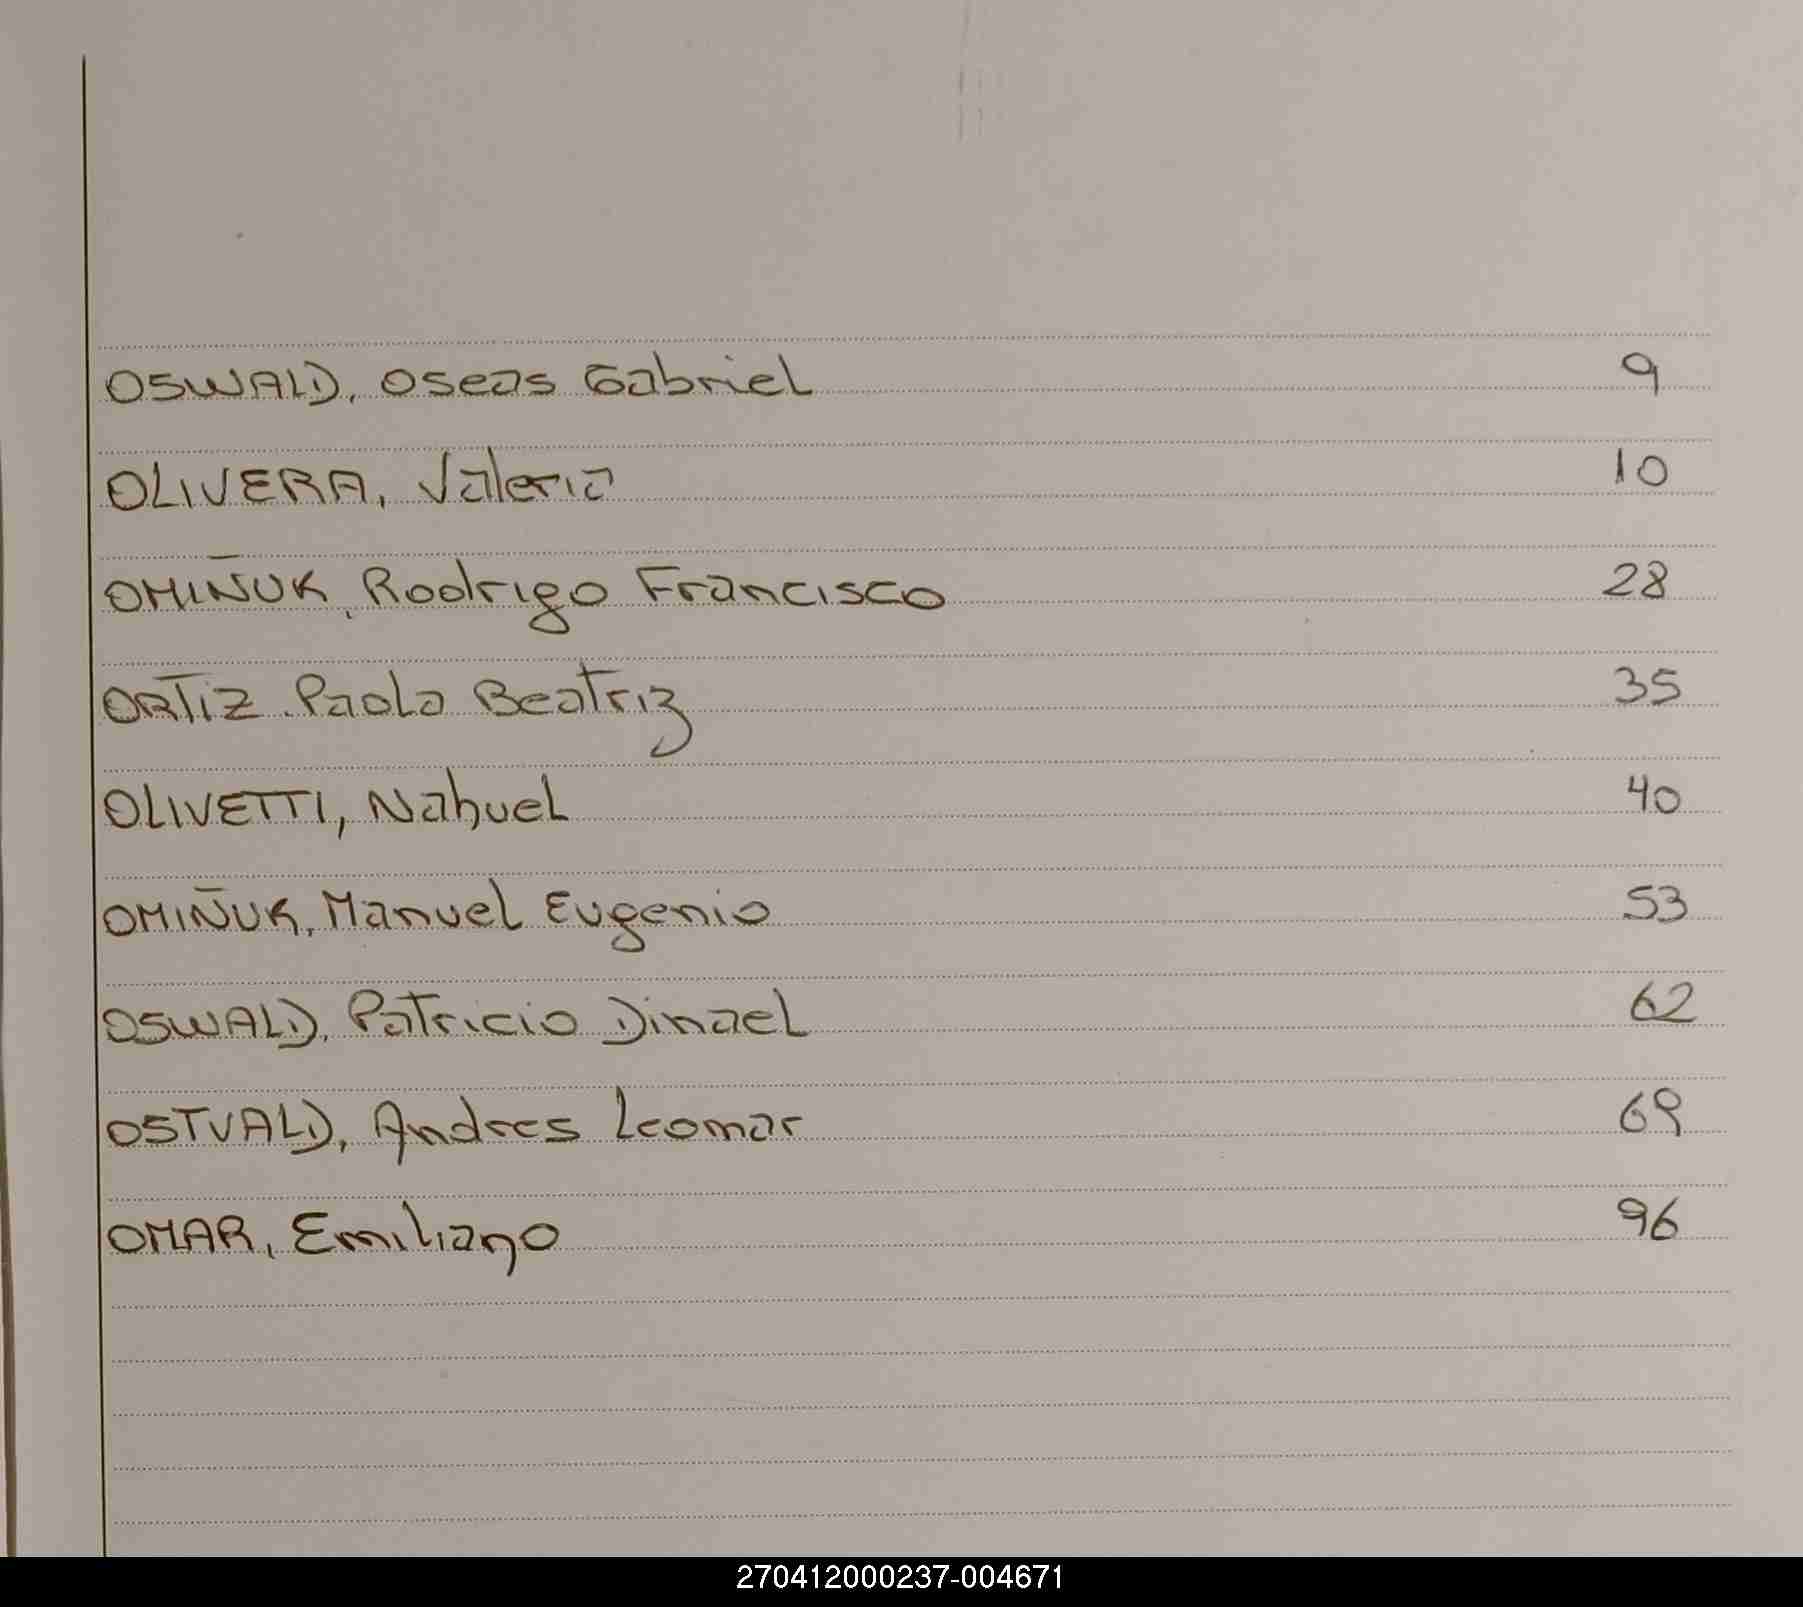 OSWALD, Oseas Gabriel 9
OLIVERA, Valeria 10
OMIÑUK, Rodrigo Francisco 28
ORTIZ, Paola Beatriz 35
OLIVETTI, Nahuel 40
OMIÑUK, Manuel Eugenio 53
OSWALD, Patricio Dinael 62
OSTVALD, Andres Leomar 69
OMAR, Emiliano 96
270412000237-004671